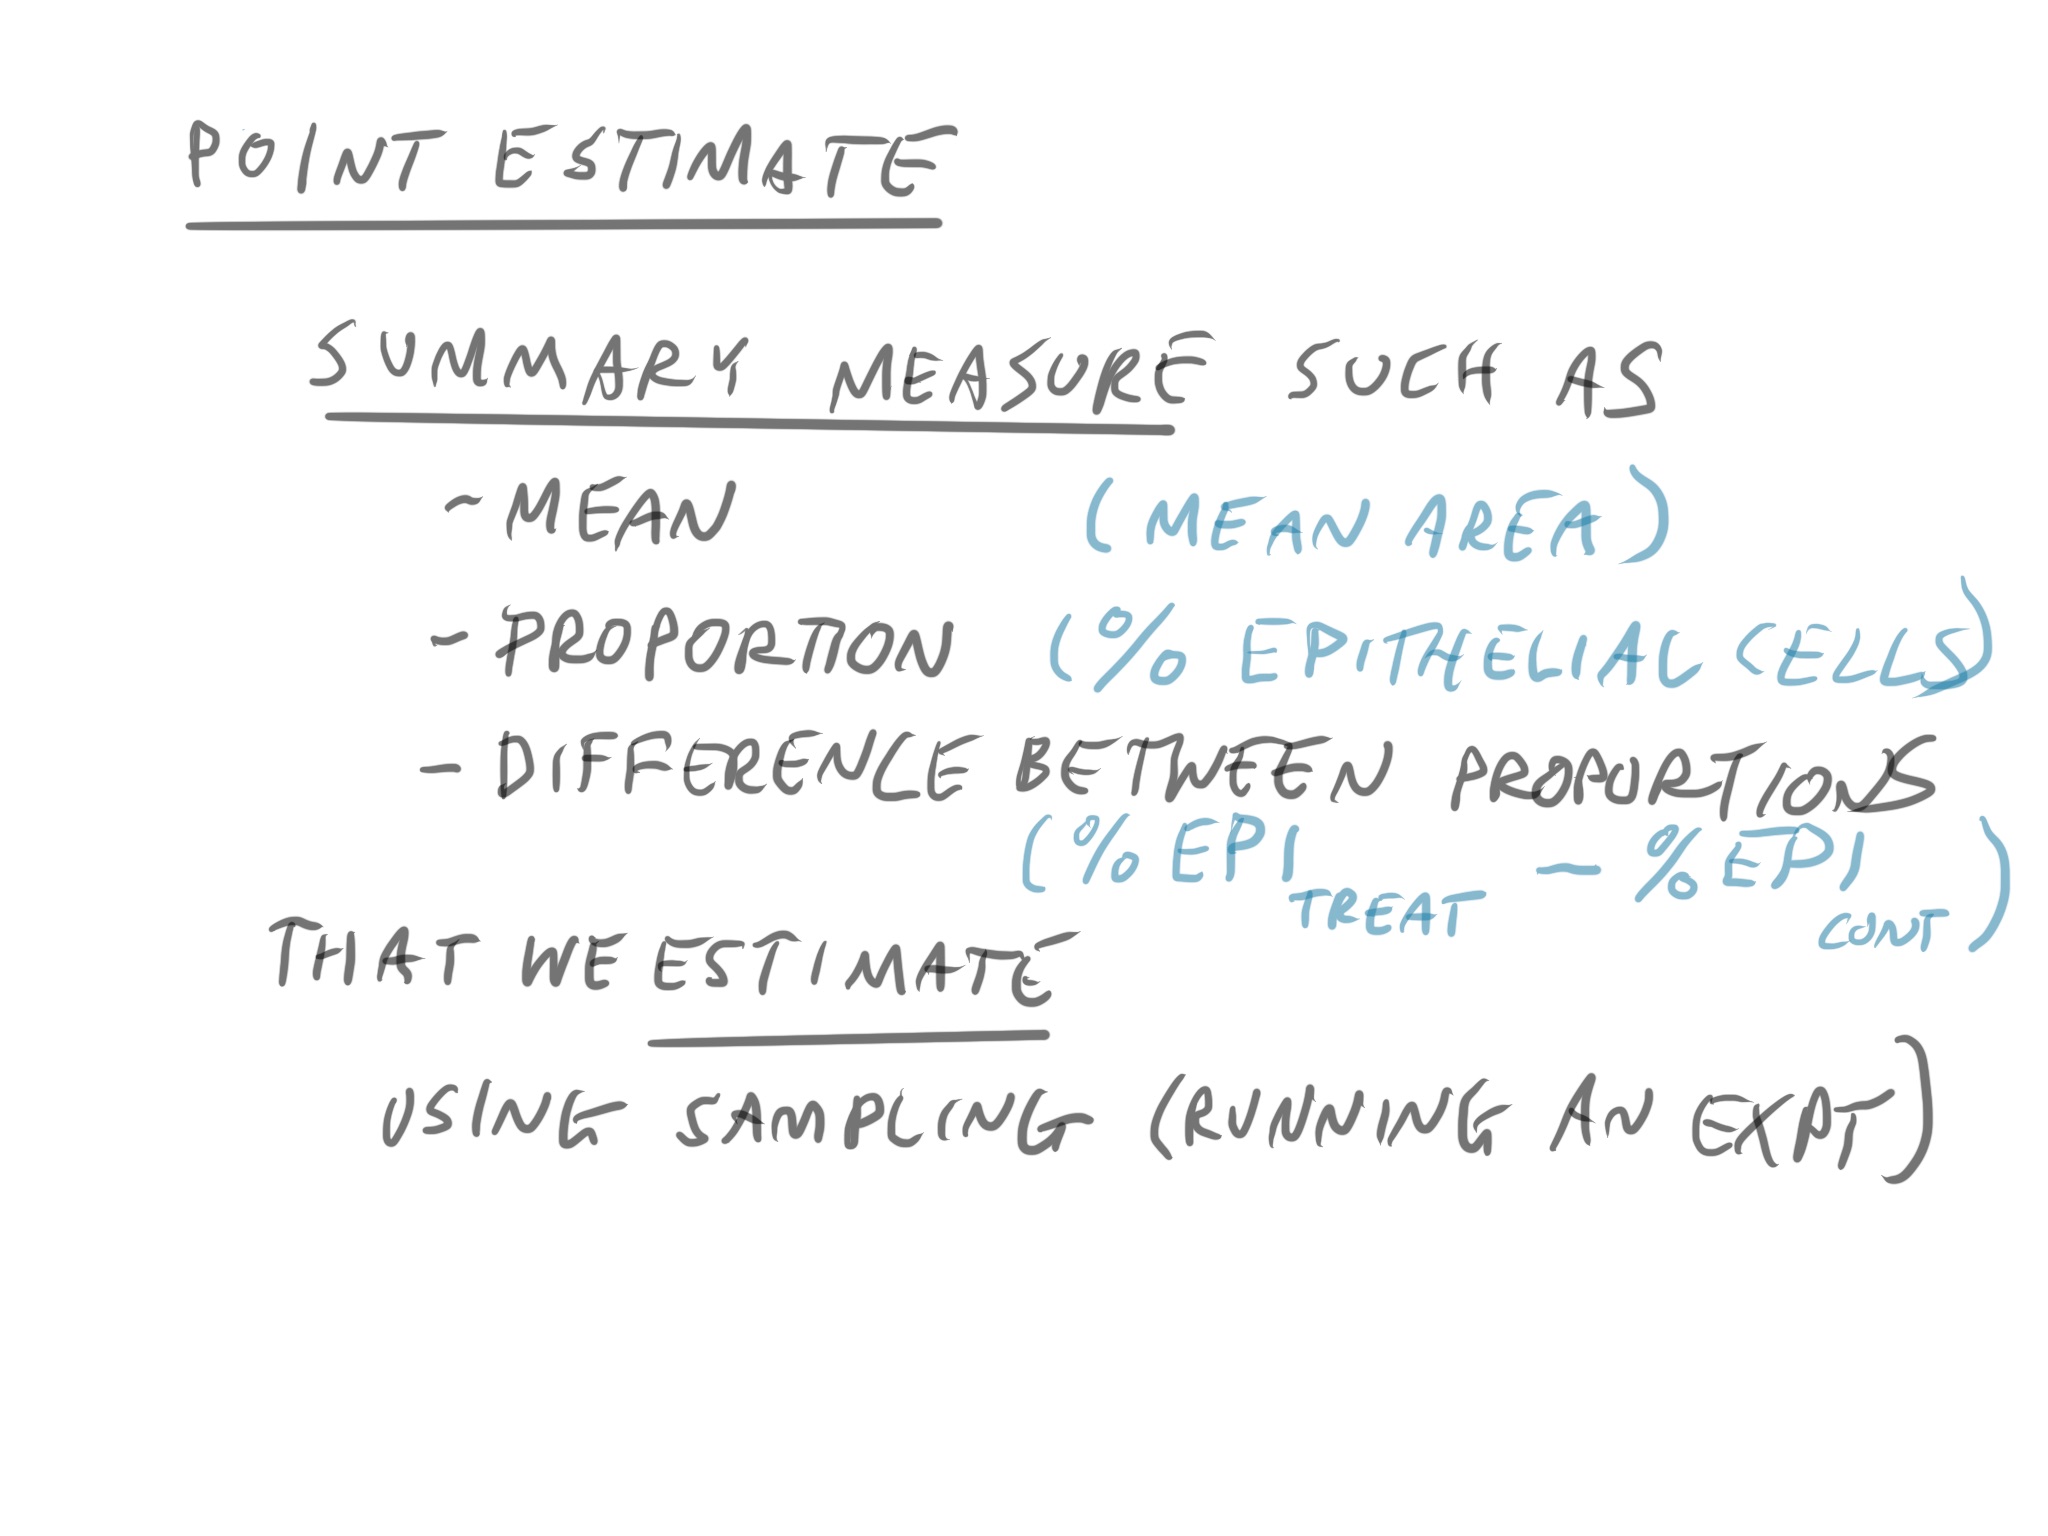 POINT ESTIMATE
SUMMARY MEASURE SUCH AS
- MEAN (MEAN AREA)
- PROPORTION (% EPITHELIAL CELLS)
- DIFFERENCE BETWEEN PROPORTIONS
(% EPI TREAT - % EPI CONT)
THAT WE ESTIMATE
USING SAMPLING (RUNNING AN EXPT)